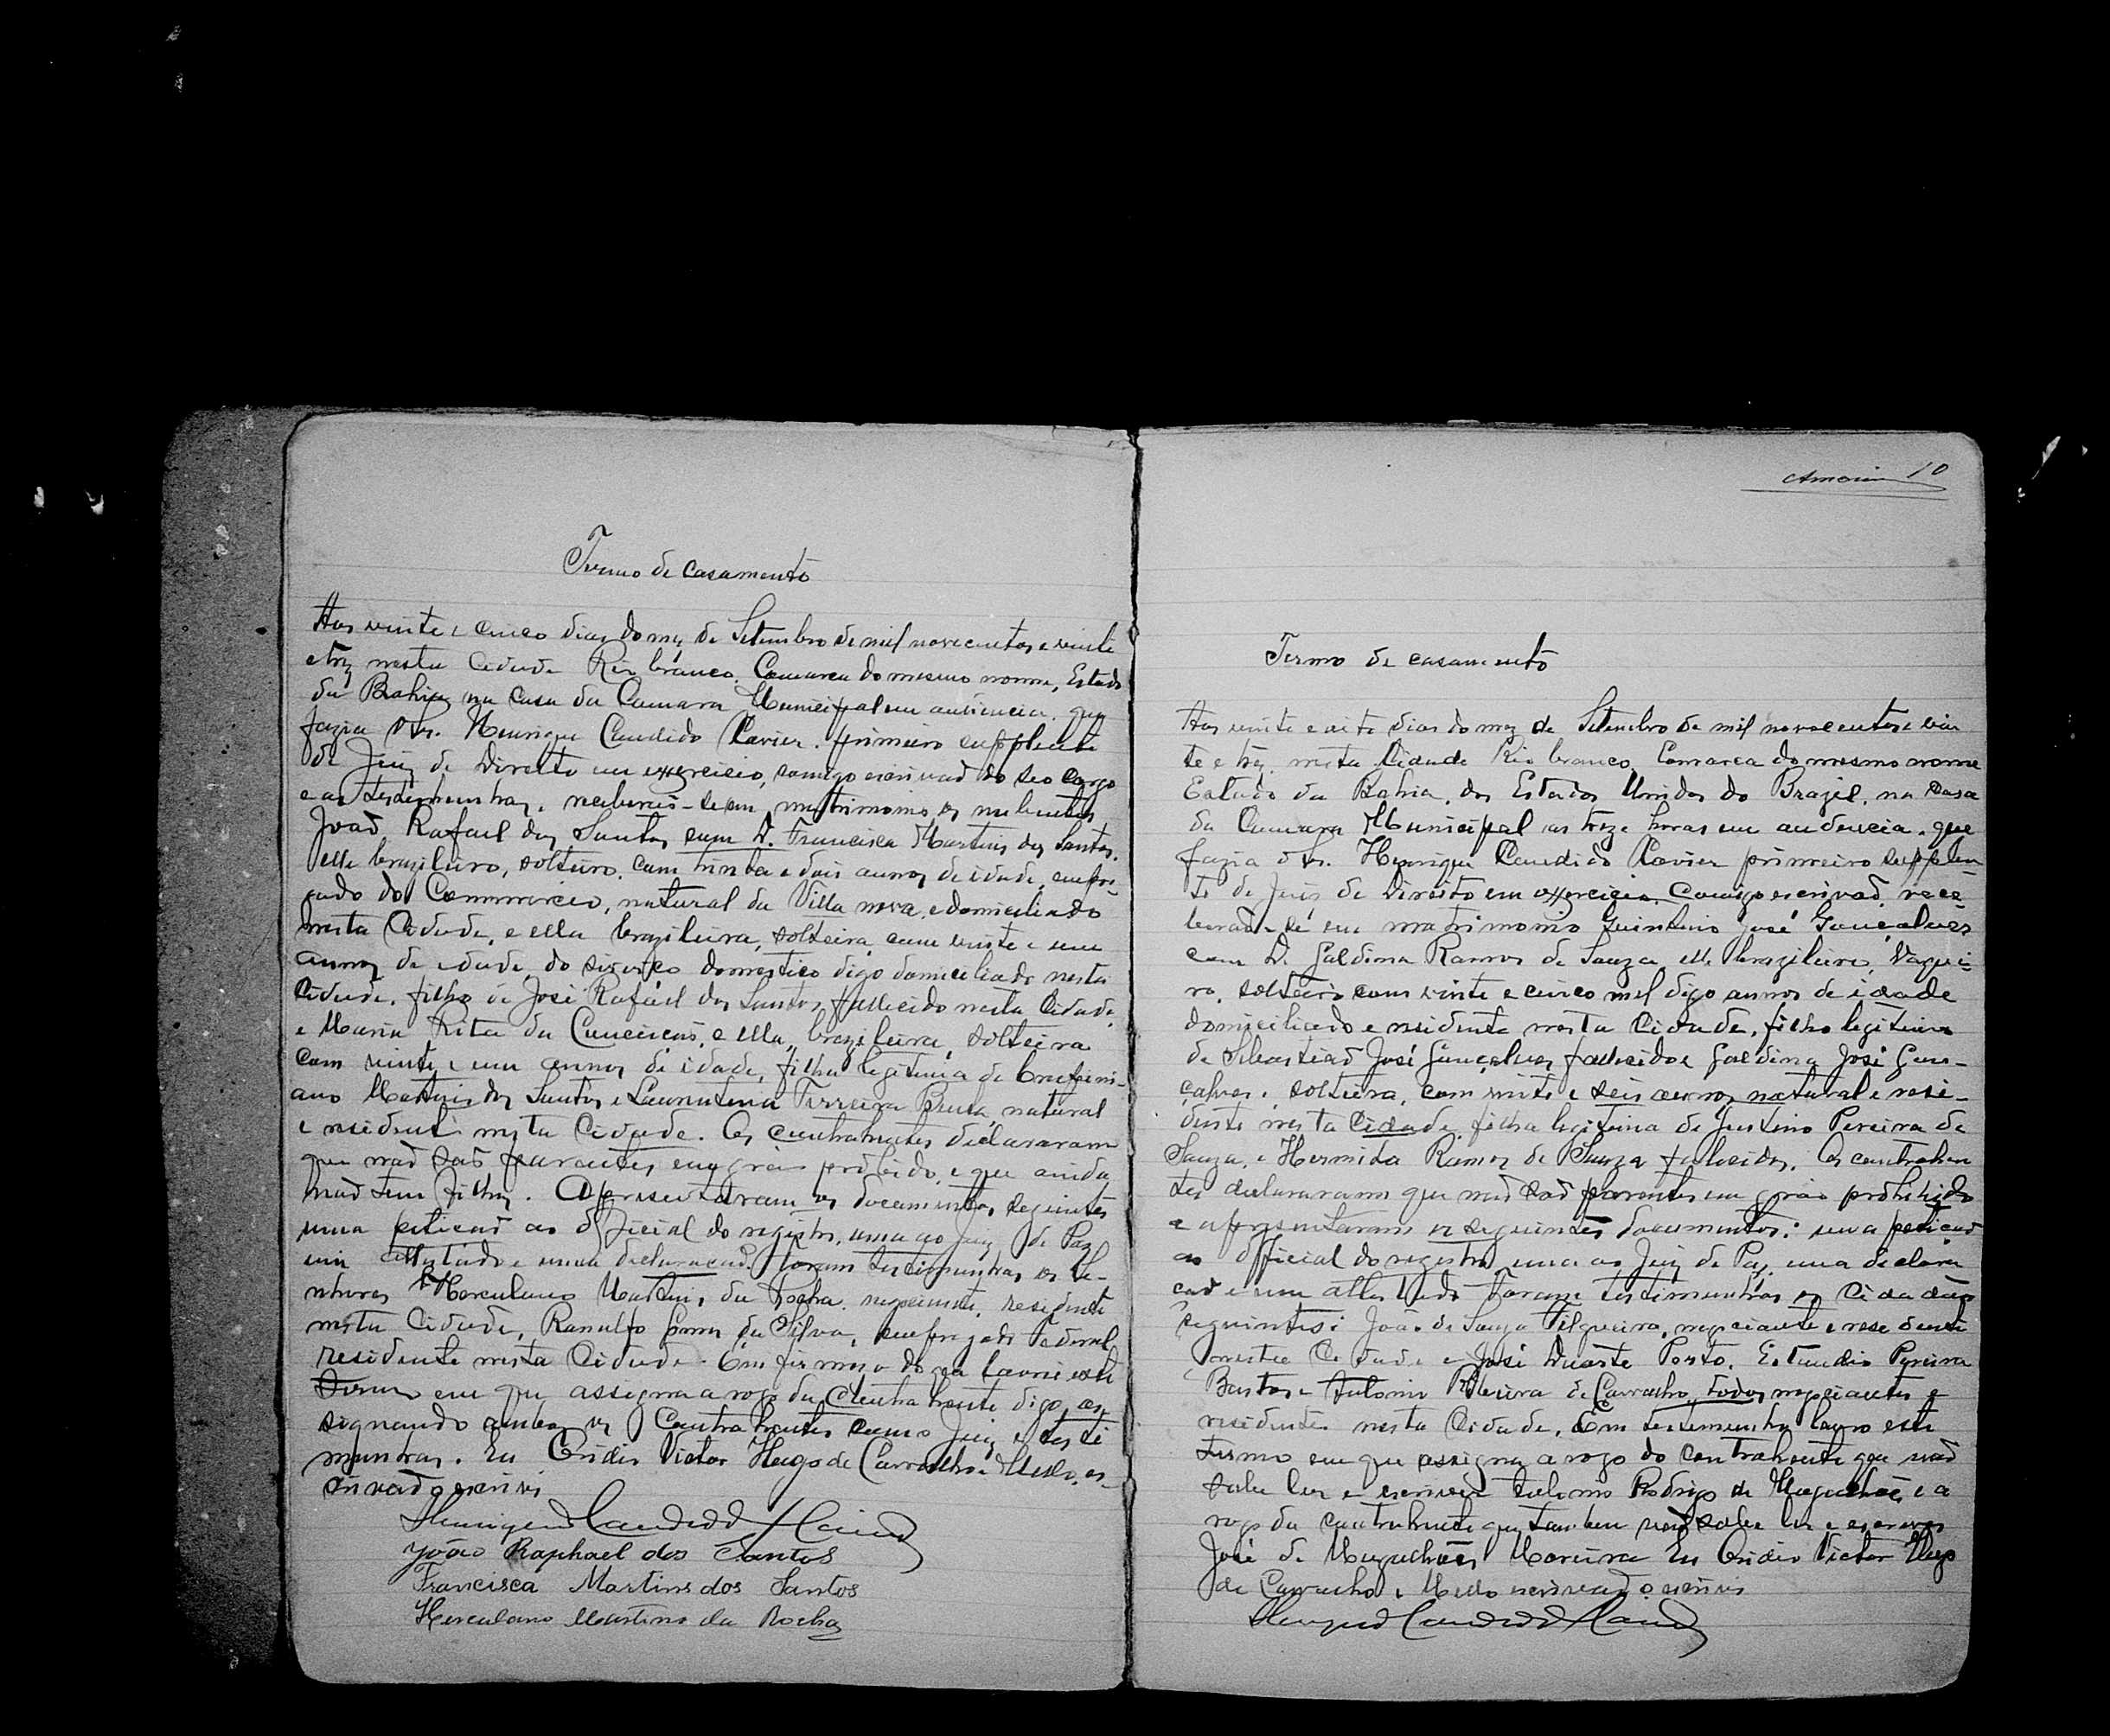 Termo de casamento
Aos vinte e cinco dias do mez de Setembro de mil novecentos e vinte
e trez nesta Cidade Rio branco, Comarca do mesmo nome, Estado
da Bahia na casa da Camara Municipal em audiencia, que
fazia o Sr. Henrique Candido Xavier, primeiro supplente
de Juiz de Direito em exercicio, comigo escrivaõ do seo cargo
e as testemunhas, receberaõ-se em matrimonio os nubentes
Joaõ Rafael dos Santos com D. Francisca Martins dos Santos,
elle brazileiro, solteiro, com trinta e dois annos de idade, empre-
gado do Commercio, natural da Villa nova, e domiciliado
nesta Cidade, e ella brazileira, solteira com vinte e um
annos de edade do serviço domestico digo domiciliado nesta
Cidade, filho de José Rafael dos Santos fallecido nesta Cidade,
e Maria Rita da Conceicaõ, e ella, brazileira, solteira
com vinte e um annos de idade, filha legitima de
ano Martins dos Santos e Ferreira natural
e residente nesta Cidade. Os contrahentes declararam
que naõ saõ parentes em grão prohibido, e que ainda
naõ tem filhos. Apresentaram os documentos seguintes
uma peticaõ ao official do registro, uma ao Juiz de Paz
um attestado e uma declaracaõ. Foram testimunhas os Se-
nhores Herculano Martins da Rocha, negociante, residente
nesta Cidade, Ranulfo Gomes da Silva, empregado Federal
residente nesta Cidade. Em firmeza do que lavrei este
termo em que assigna a rogo da Contrahente digo, as-
signando ambos os Contrahentes como Juiz e testi
munhas. Eu Ovidio Victor Hugo de Carvalho e Mello, es-
crivaõ o escrivi
Henrique Candido Xavier
João Raphael dos Santos
Francisca Martins dos Santos
Herculano Martins da Rocha
Amorim 10
Termo de casamento
Aos vinte e oito dias do mez de Setembro de mil novecentos e vin
te e trez, nesta Cidade Rio branco, Comarca do mesmo nome
Estado da Bahia, dos Estados Unidos do Brazil, na casa
da Camara Municipal as treze horas em audencia, que
fazia o Sr. Henrique Candido Xavier primeiro supplen
te de Juiz de Direito em exercicio, Comigo escrivaõ, rece
beraõ-se em matrimonio Quintino José Gonçalves
com D. Galdina Ramos de Souza, elle brazileiro, Vaquei-
ro, solteiro com vinte e cinco mil digo annos de idade
domiciliado e residente nesta Cidade, filho legitimo
de Sebastiaõ José Gonçalves fallecido e Galdina José Gon-
çalves, solteira, com vinte e seis annos natural e resi-
dente nesta Cidade filha legitima de Justino Pereira de
Souza, e Hermida Ramos de Souza fallecidos. Os contrahen
tes declararam que naõ saõ parentes em grão prohibido
e apresentaram os seguintes documentos: uma peticaõ
ao official do registro, uma ao Juiz de Paz, uma declara
caõ e um attestado Foram testimunhas os Cidadãos
seguintes: João de Souza Filgueira, negociante e residente
nesta Cidade e José Duarte Porto, Pereira
Bastos e Antonio Pereira de Carvalho, todos negociantes e
residentes nesta Cidade. Em testemunha lavro este
termo em que assigna a rogo do contrahente que naõ
sabe ler e escrever Antonio Rodrigo de Magalhães e a
rogo da contrahente que tambem naõ sabe ler e escrever
José de Magalhães Moreira Eu Ovidio Victor Hugo
de Carvalho e Mello escrivaõ o escrivi
Henrique Candido Xavier